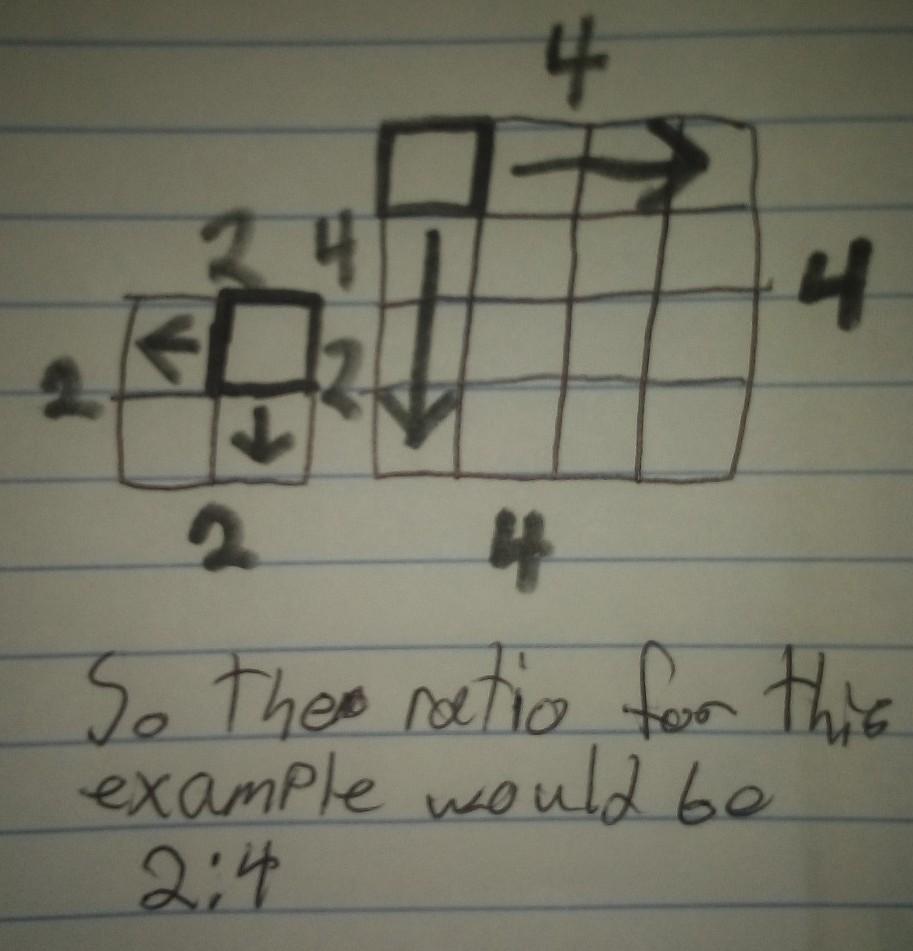 4
2 4
4
2 2
2 4
So the ratio for this
example would be
2:4